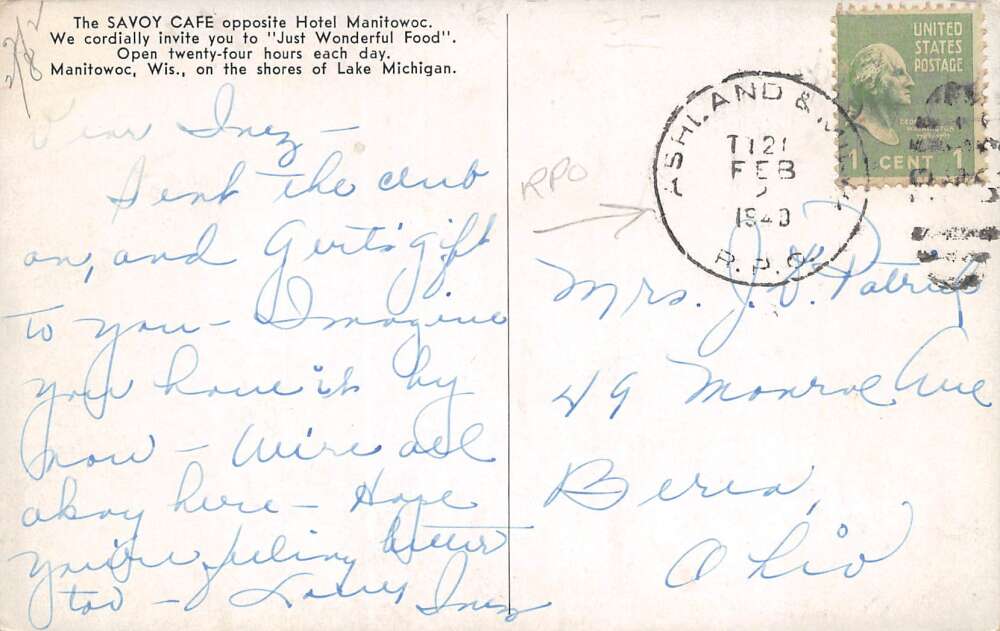 The SAVOY CAFE opposite Hotel Manitowoc.
We cordially invite you to "Just Wonderful Food".
Open twenty-four hours each day.
Manitowoc, Wis., on the shores of Lake Michigan.
Dear Inez –
Sent the club
on, and Gert's gift
to you – Imagine
you have it by
now – We're all
okay here – Hope
you're feeling better
too – Love, Inez
RPO
ASHLAND & MIL
T 121
FEB
2
1940
R.P.O.
UNITED
STATES
POSTAGE
1 CENT 1
Mrs. J. V. Patrick
49 Monroe Ave
Berea,
Ohio